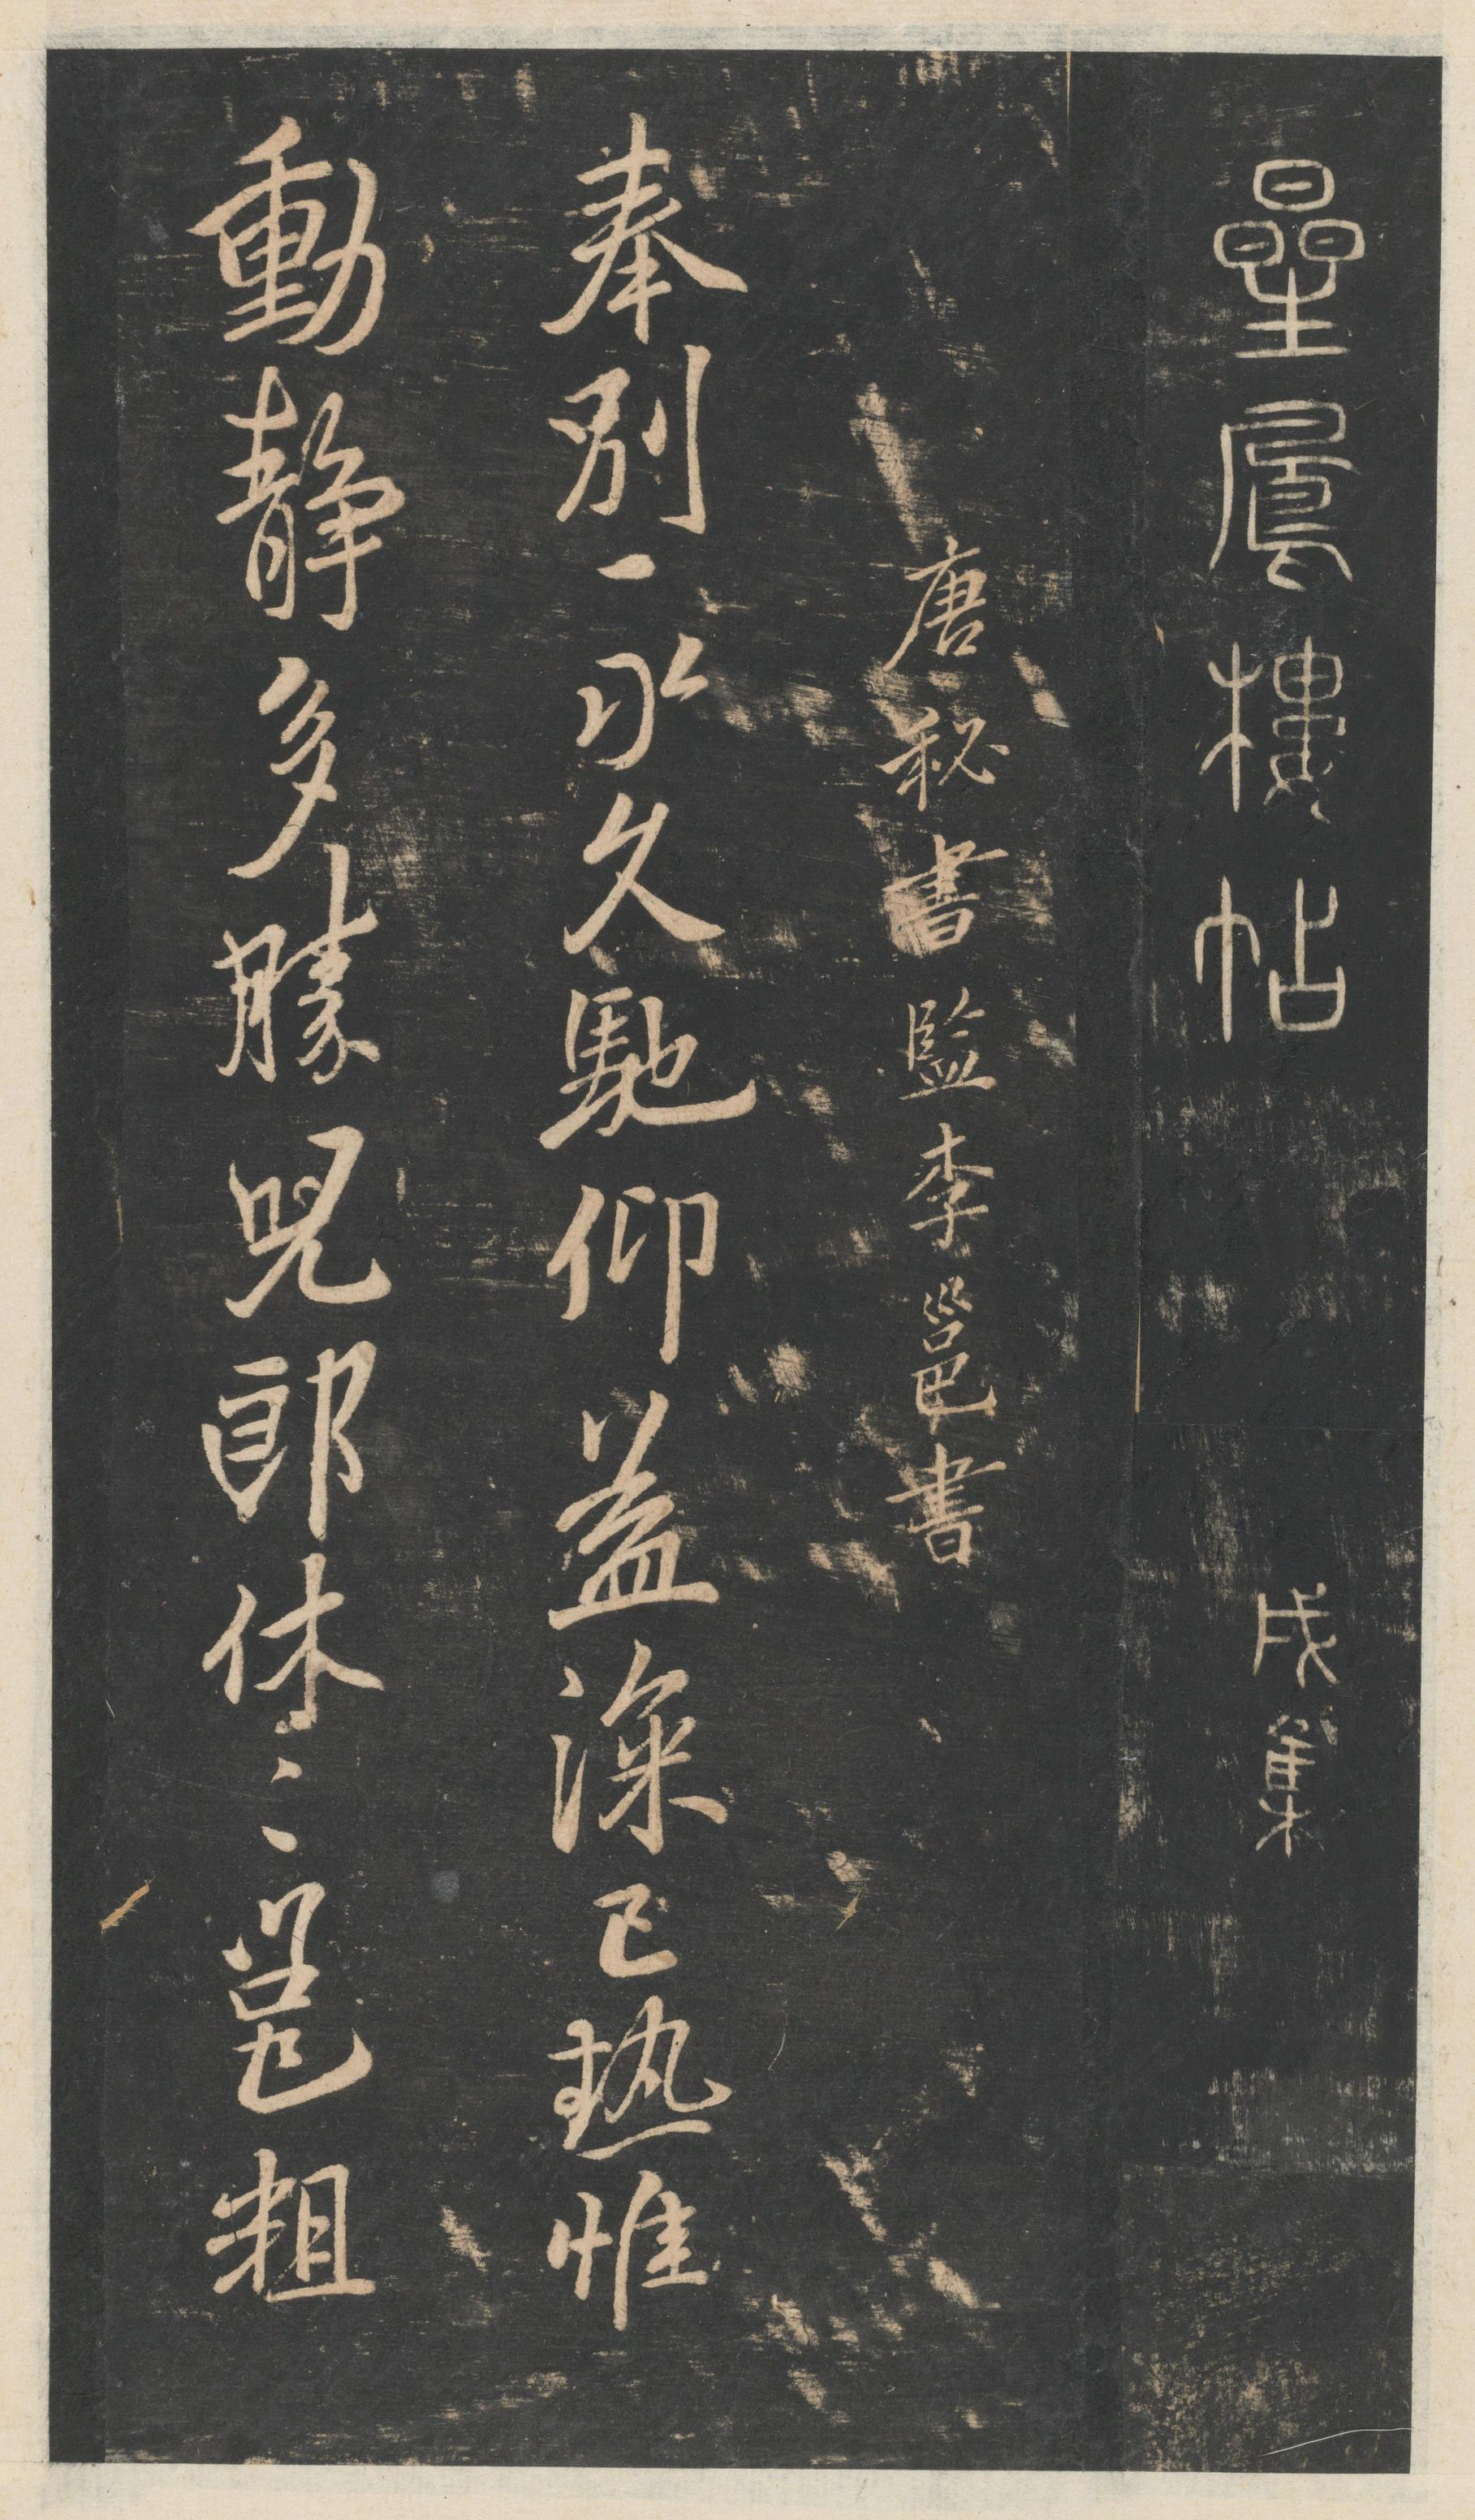 曐鳳樓帖 戌集
唐秘書監李邕書
奉別永久馳仰益深已熱惟
動静多勝兒郎休〻邕粗